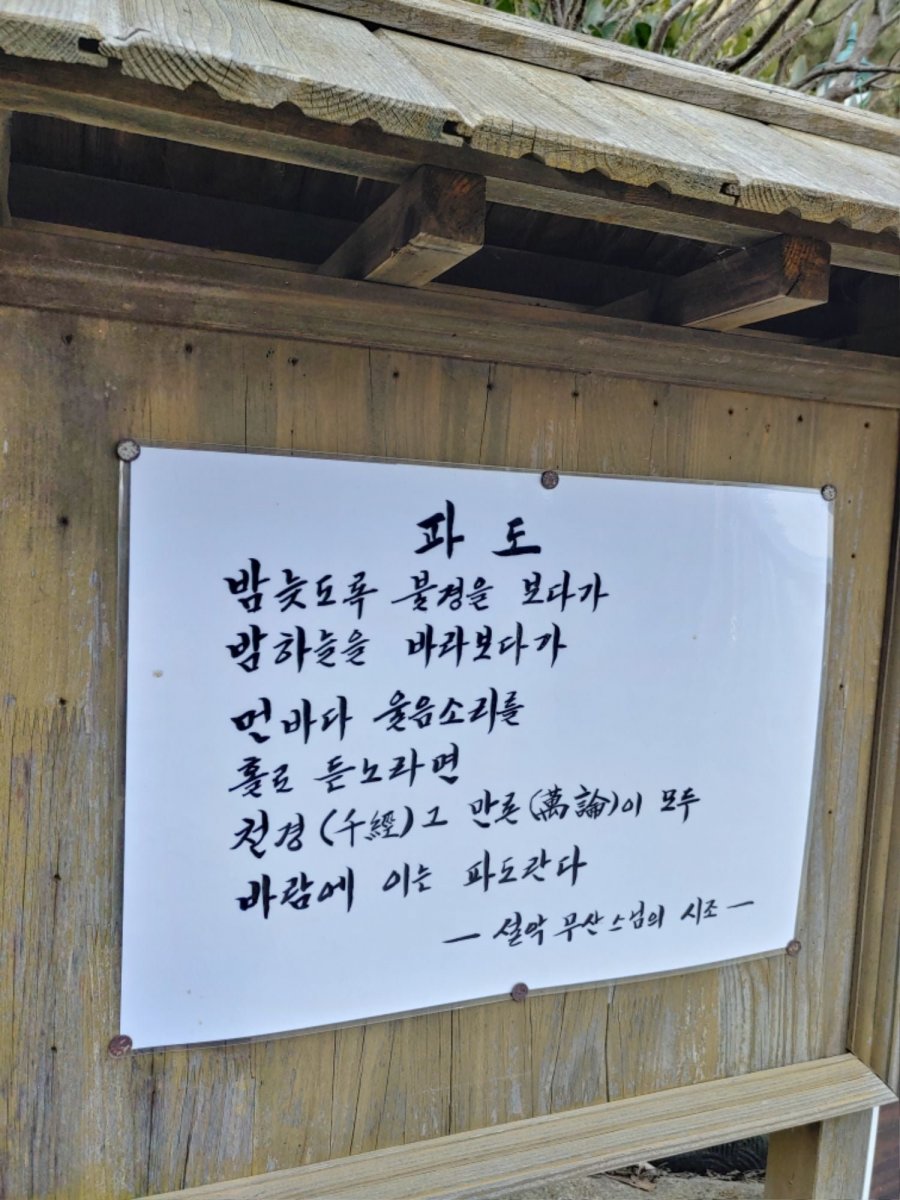 파 도
밤늦도록 불경을 보다가
밤하늘을 바라보다가
먼바다 울음소리를
홀로 듣노라면
천경(千經)그 만론(萬論)이 모두
바람에 이는 파도란다
- 설악 무산스님의 시조 -